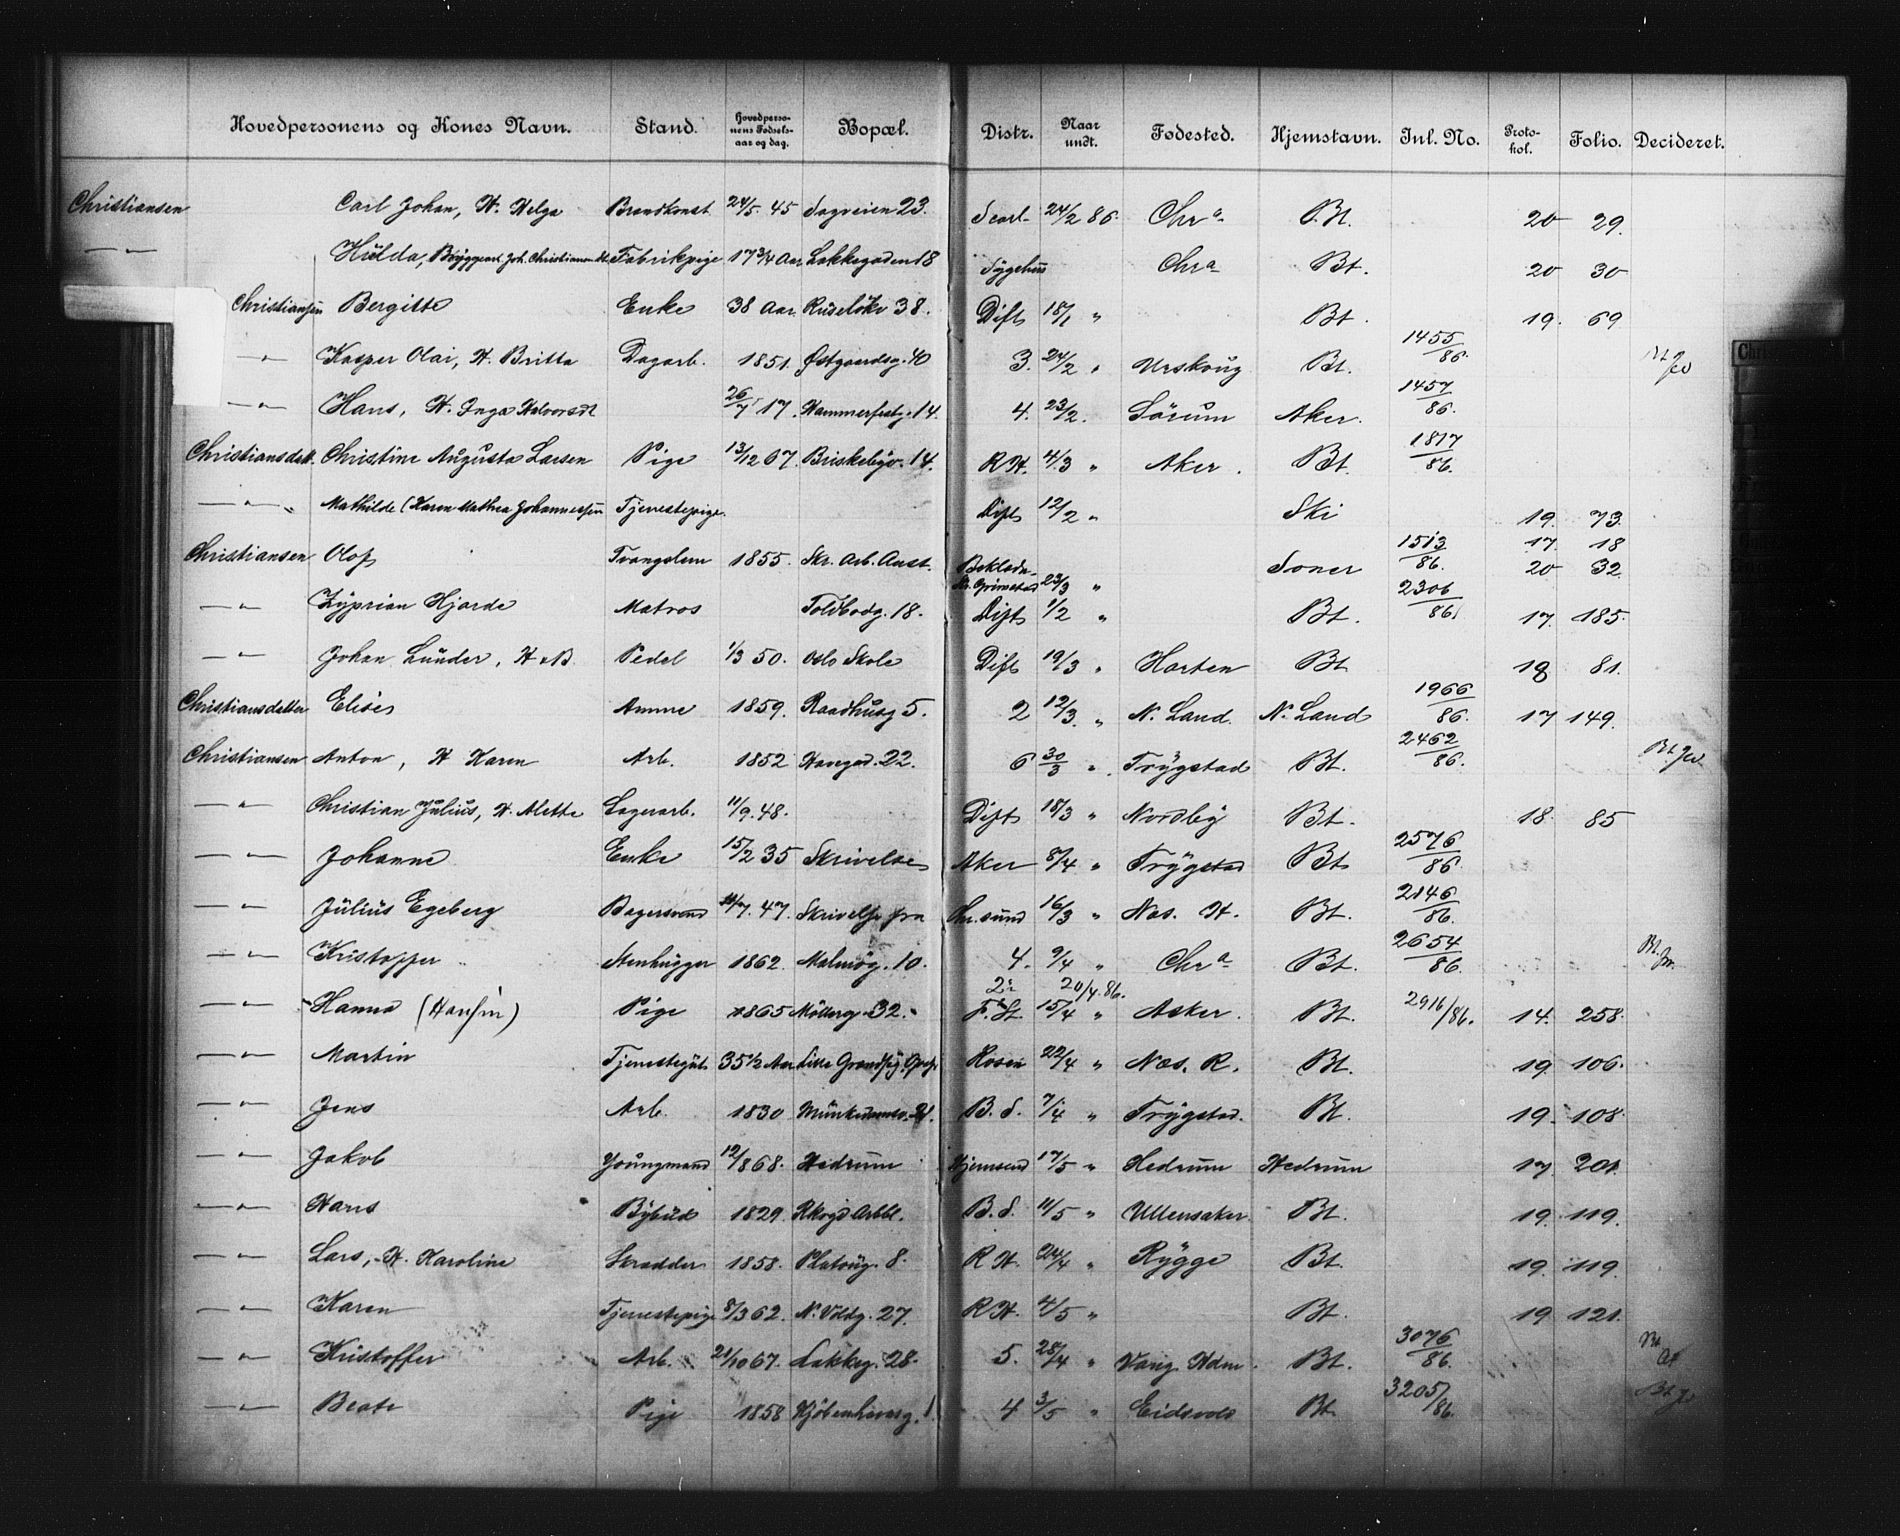 Hovedpersonens og Kones Navn. Stand. Hovedperso-nens Fødsels-aar og dag. Bopæl. Distr. Naar undt. Fødested. Hjemstavn. Inl. No. Proto-kol. Folio. Decideret.
Christiansen Carl Johan, H. Helga Brandkonst. 24/5. 45 Sagveien 23. 24/2 86. Chr a. Bt. 20 29.
— " — Hulda, Fabrikpige 17 3/4 Aar Lakkegaden 18 Sygehus Chr a Bt. 20 30
Christiansen Bergitte Enke 38 Aar Ruseløkv 38. Dift 18/1 " Bt. 19. 69
— " — Kasper Olai, H. Britta Dagarb. 1851. Østgaardsg. 40 3. 24/2 " Urskoug Bt. 1455/86.
— " — Hans, H. Inga Halvorsdt 26/7 17. Hammerfestg. 14. 4. 23/2. Sørum Aker. 1457/86.
Christiansdatt. Christine Augusta Larsen Pige 13/12 67. Briskebyv. 14. R H. 4/3 " Aker. Bt. 1817/86.
— " — Mathilde (Karen Mathea Johannessen Tjenestepige. Dift 12/2 " Ski 19. 73.
Christiansen Olof Tvangslem 1855. Skr. Arb. Anst. 23/3 " Soner 1513/86. 17. 18 20 32.
— " — Zyprian Hjorde Matros Toldbodg. 18. Dift 1/2 " Bt. 2306/86. 17. 185.
— " — Johan Lunder, Pedel 1/3 50. Oslo Skole Dift 19/3 " Horten Bt 18 81.
Christiansdatter Elise Amme 1859. Raadhusg 5. 2 12/3. " N. Land. N. Land 1966/86. 17 149.
Christiansen Anton, H Karen Arb. 1852 Havegad. 22. 6 30/3 " Trygstad Bt. 2462/86.
— " — Christian Julius, H. Alette Lagerarb. 11/9. 48. Dift 18/3 " Nordby Bt. 18. 85
— " — Johanne Enke 15/2 35 Skrivelse Aker 8/4 " Trygstad Bt 2576/86
— " — Julius Egeberg Bagersvend 47. Skrivelse fra Chr. sund 16/3 " Næs. H. Bt. 2146/86.
— " — Kristoffer Stenhugger 1862. Malmøg. 10. 4. 9/4 " Chr a. Bt. 2654/86.
— " — Hanna (Hansen) Pige 1865 Møllerg 32. 20/4 86. 15/4 " Asker. Bt. 2916/86. 14. 258.
— " — Martin Tjenestegut 35 1/2 Aar 22/4 " Næs. R. Bt. 19. 106.
— " — Jens Arb. 1830 B. S. 7/4 " Trygstad. Bt. 19. 108.
— " — Jakob Youngmand 12/8 68. Hedrum 17/5 " Hedrum Hedrum 17. 201.
— " — Hans Bybud 1829. B. S. 11/5 " Ullensaker Bt. 19. 119.
— " — Lars, H. Karoline Skrædder 1858. Platoug. 8. R H. 24/4 " Rygge Bt. 19. 119.
— " — Karen Tjenestepige 8/3 62. N. Voldg. 27. R H. 4/5 " Bt. 19 121.
— " — Kristoffer Arb. 21/10 67. Lakkeg. 28. 5. 28/4 " Bt. 3076/86.
— " — Beate Pige 1858 Kjøbenhavng. 1. 4 3/5 " Eidsvold Bt. 3205/86.